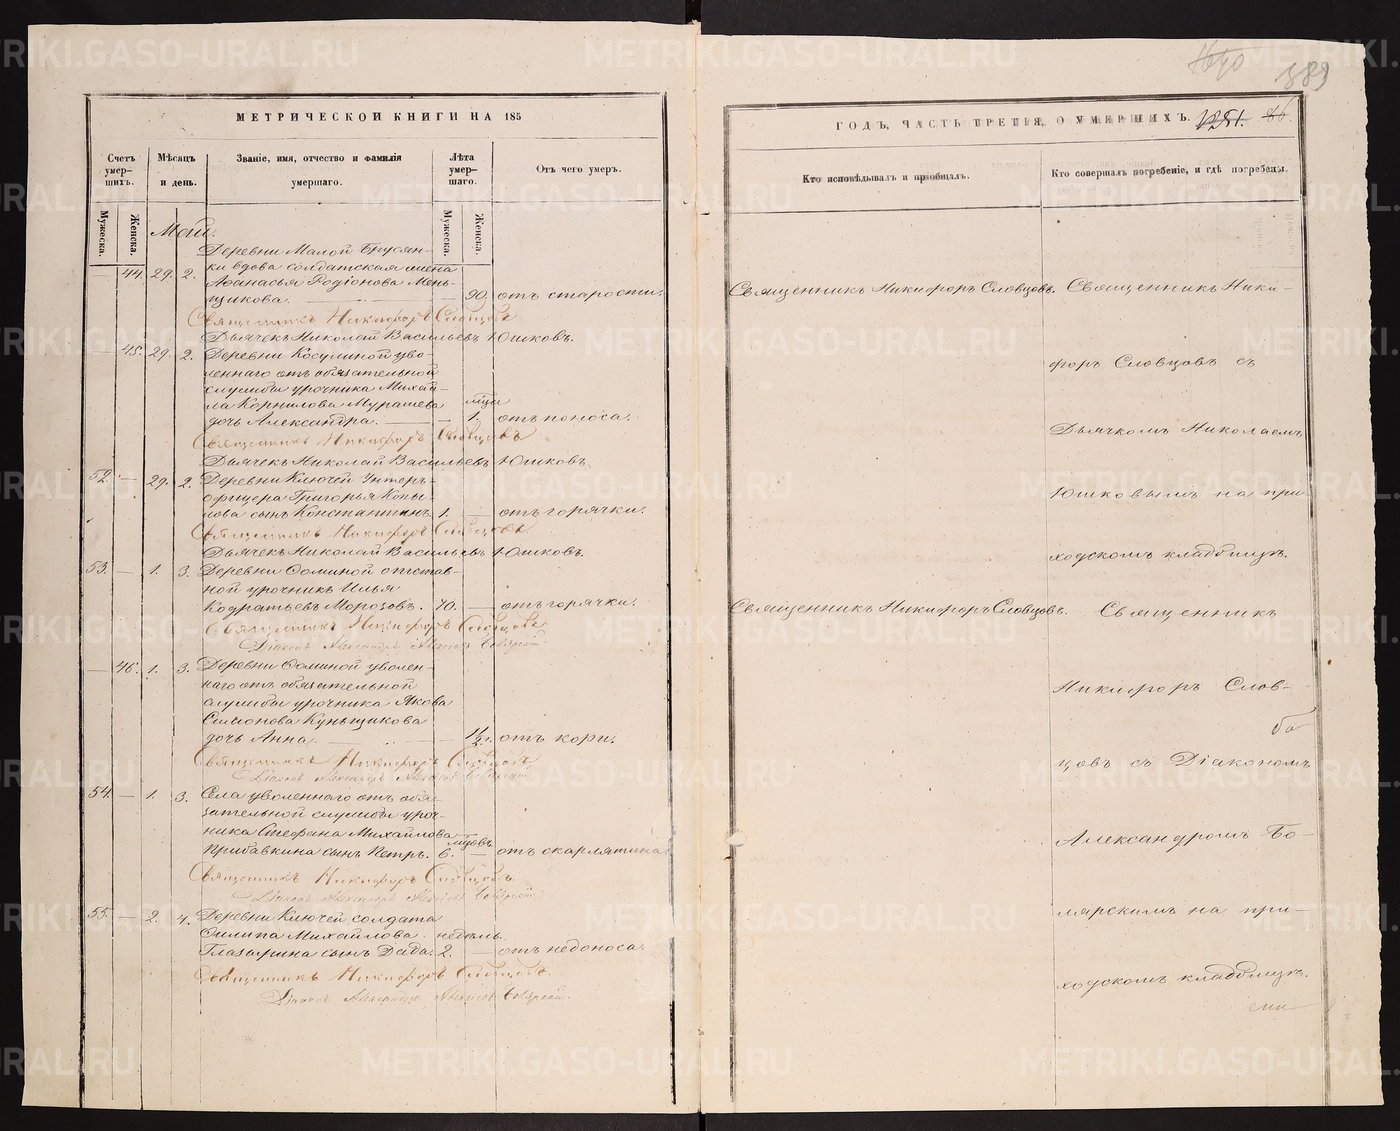 МЕТРИЧЕСКОЙ КНИГИ НА 185
Счетъ умер-шихъ.
Мѣсяцъ и день.
Званіе, имя, отчество и фамилія умершаго.
Лѣта умер-шаго.
Отъ чего умеръ.
Мужеска.
Женска.
Мужеска.
Женска.
Май.
Деревни Малой Брусян-
ки вдова солдатская жена
44. 29. 2. Афанасья Родіонова Мень-
щикова. — 90. отъ старости.
Священникъ Никифоръ Словцовъ
Дьячекъ Николай Васильевъ Юшковъ.
45. 29. 2. Деревни Косулиной уво-
леннаго отъ обязательной
службы урочника Михай-
ла Корнилова Мурашева мѣся
дочь Александра. — 1. отъ поноса.
Священникъ Никифоръ Словцовъ
Дьячекъ Николай Васильевъ Юшковъ.
52. — 29. 2. Деревни Ключей Унтеръ-
офицера Григорья Копы-
лова сынъ Константинъ. 1. — отъ горячки.
Священникъ Никифоръ Словцовъ
Дьячекъ Николай Васильевъ Юшковъ.
53. — 1. 3. Деревни Фоминой отстав-
ной урочникъ Илья
Кодратьевъ Морозовъ. 70. — отъ горячки.
Священникъ Никифоръ Словцовъ.
Діаконъ Александръ Алексѣевъ Боярскій
— 46. 1. 3. Деревни Фоминой уволен-
наго отъ обязательной
службы урочника Якова
Симіонова Куньщикова
дочь Анна. — 1½. отъ кори.
Священникъ Никифоръ Словцовъ
Діаконъ Александръ Алексѣевъ Боярскій
54. — 1. 3. Села уволеннаго отъ обя-
зательной службы уроч-
ника Стефана Михайлова мѣсяцовъ
Прибавкина сынъ Петръ. 6. — отъ скарлятина
Священникъ Никифоръ Словцовъ.
Діаконъ Александръ Алексѣевъ Боярскій
55. — 2. 4. Деревни Ключей солдата
Филипа Михайлова недѣль.
Глазырина сынъ Дада. 2. — отъ недоноса.
Священникъ Никифоръ Словцовъ.
Діаконъ Александръ Алексѣевъ Боярскій.
389
ГОДЪ, ЧАСТЬ ТРЕТІЯ, О УМЕРШИХЪ.
Кто исповѣдывалъ и пріобщалъ.
Кто совершалъ погребеніе, и гдѣ погребены.
Священникъ Никифоръ Словцовъ. Священникъ Ники-
форъ Словцовъ съ
Дьячкомъ Николаемъ
Юшковымъ на при-
ходскомъ кладбищѣ.
Священникъ Никифоръ Словцовъ. Священникъ
Никифоръ Слов-
цовъ съ Діакономъ
Александромъ Бо-
лярскимъ на при-
ходскомъ кладбищѣ.
METRIKI.GASO-URAL.RU